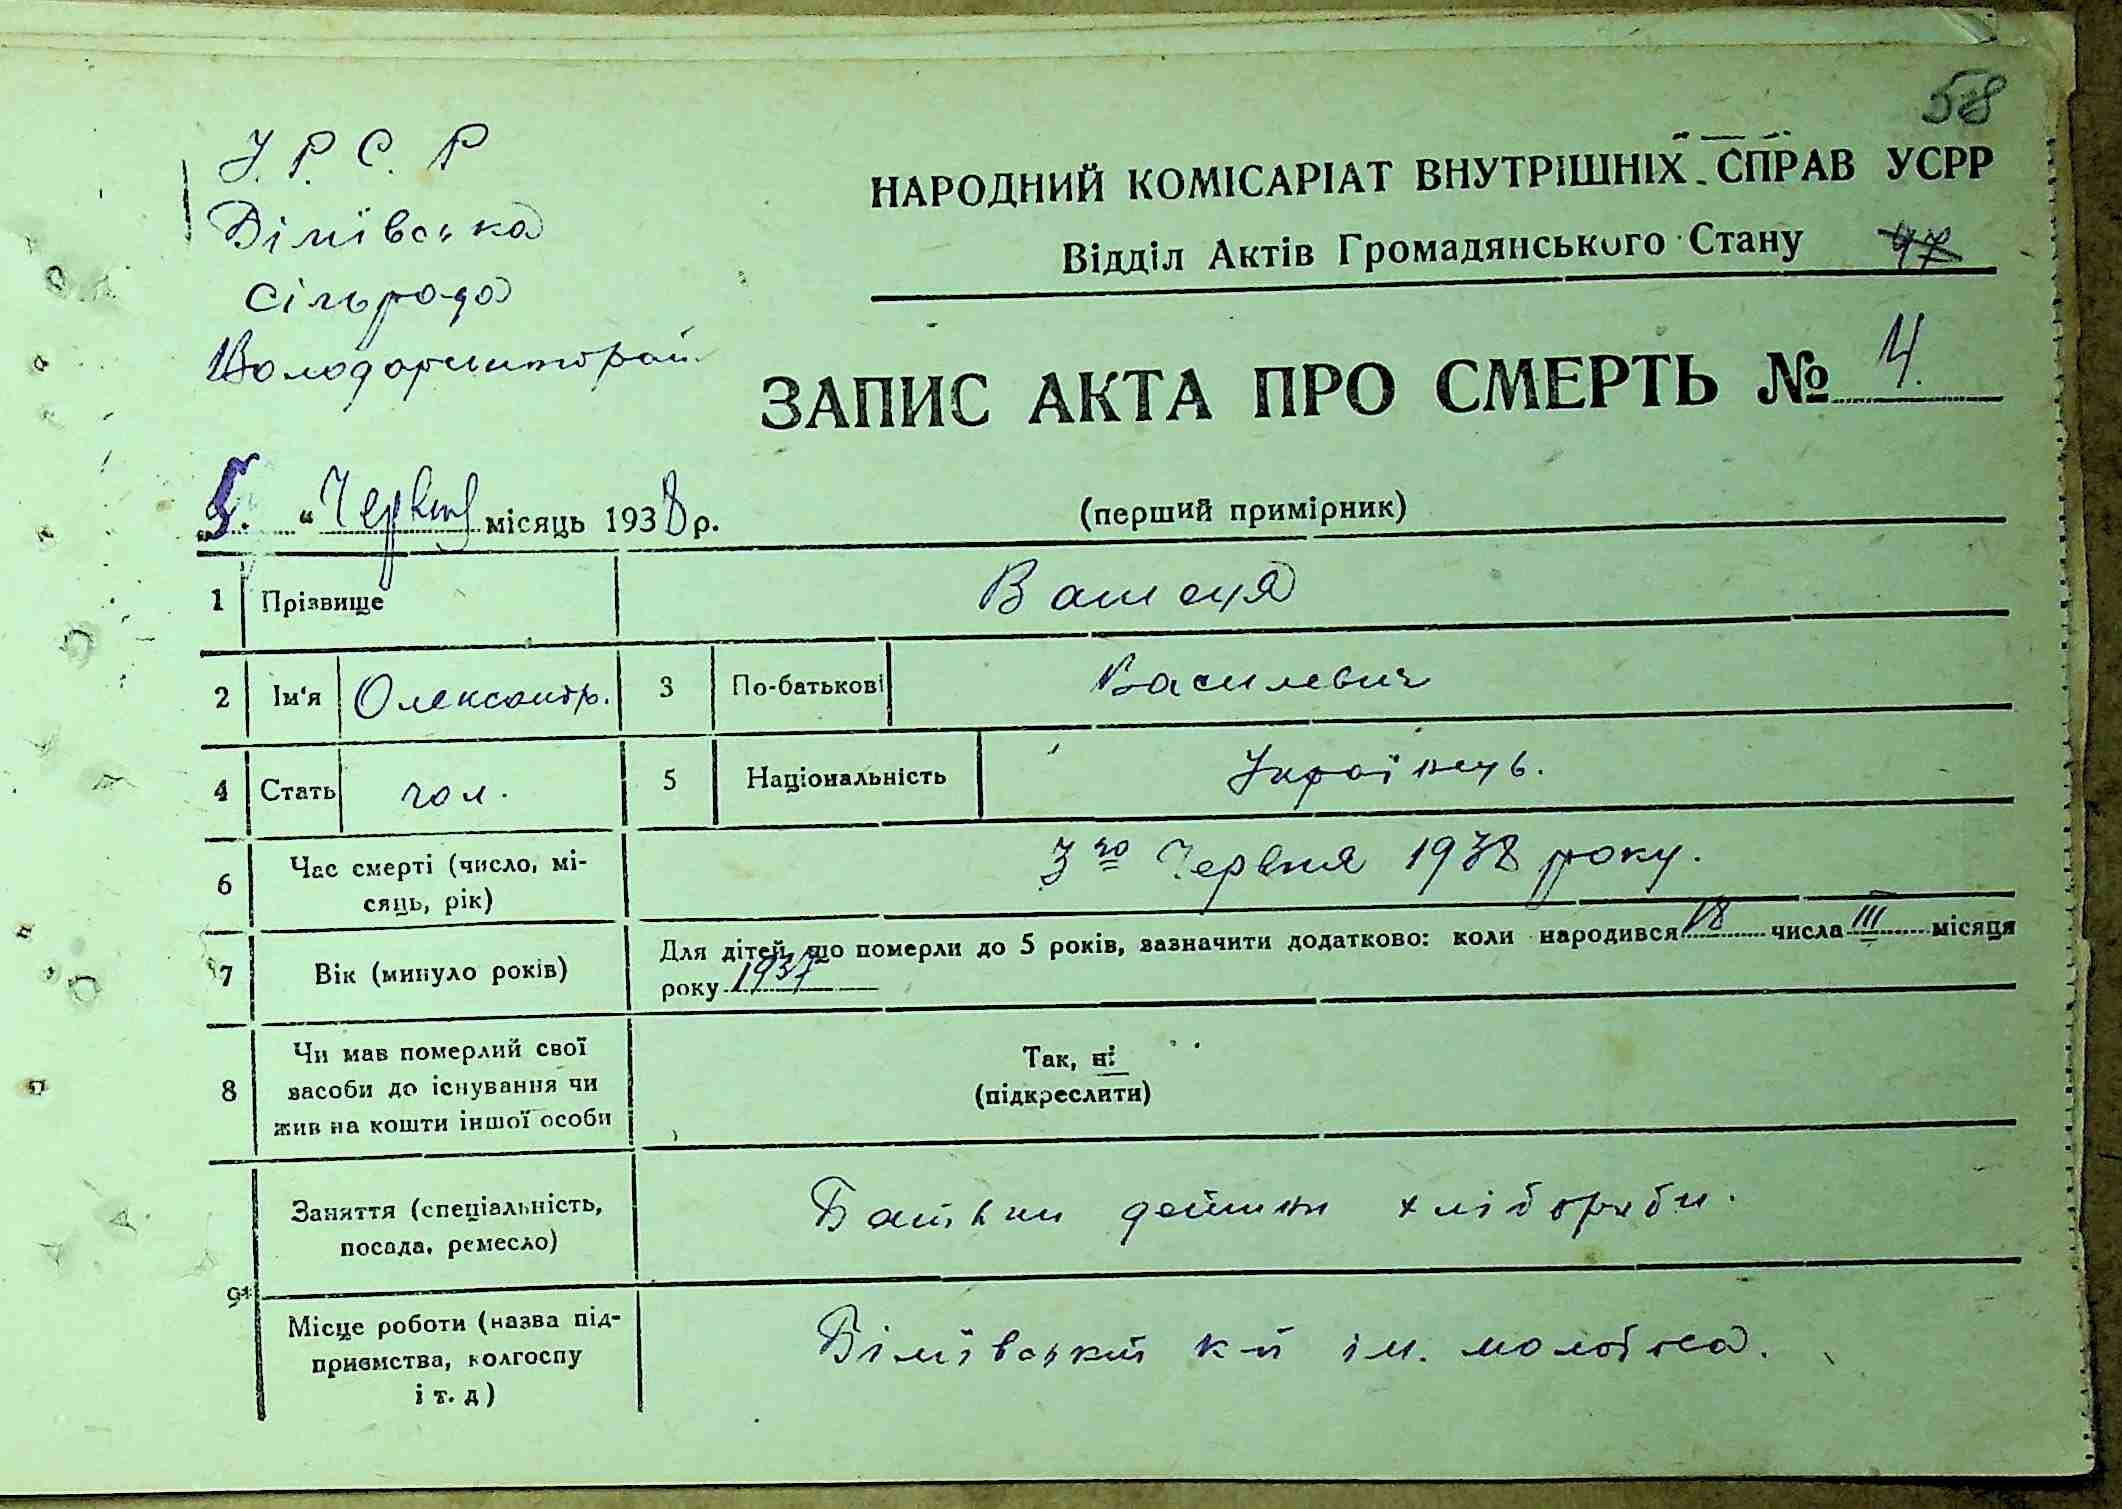 58
У.Р.С.Р
Біліївська
сільрада
НАРОДНИЙ КОМІСАРІАТ ВНУТРІШНІХ СПРАВ УСРР
Відділ Актів Громадянського Стану 47
ЗАПИС АКТА ПРО СМЕРТЬ № 4.
„5.“ Червня місяць 1938 р.
(перший примірник)
1 Прізвище
2 Ім'я Олександр. 3 По-батькові Василевич
4 Стать чол. 5 Національність Українець.
6 Час смерті (число, мі-
сяць, рік) 3го Червня 1938 року.
7 Вік (минуло років) Для дітей, що померли до 5 років, зазначити додатково: коли народився 18 числа III місяця
року 1937
8 Чи мав померлий свої
засоби до існування чи
жив на кошти іншої особи
Так, ні
(підкреслити)
9* Заняття (спеціальність,
посада, ремесло) Батьки хлібороби.
Місце роботи (назва під-
приємства, колгоспу
і т. д) Біліївський к-п ім.